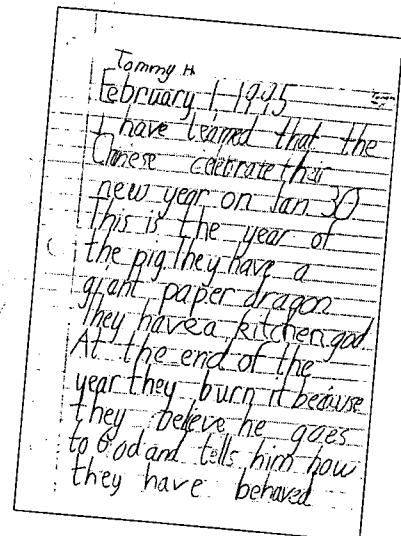 Tommy H.
February 1, 1995
I have learned that the
Chinese celebrate thier
new year on Jan 30
This is the year of
the pig. they have a
giant paper dragon
They have a kitchen god.
At the end of the
year they burn it because
they beleve he goes
to God and tells him how
they have behaved